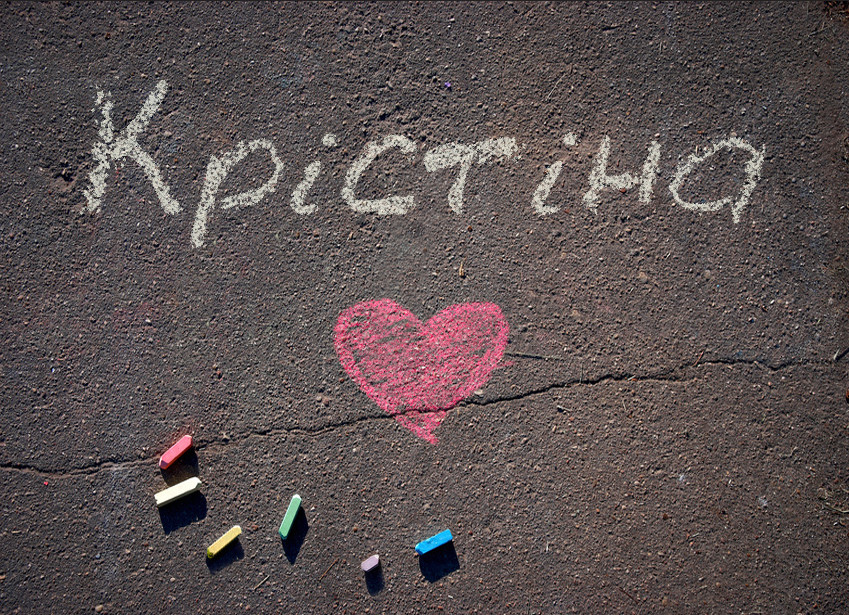 Крістіна